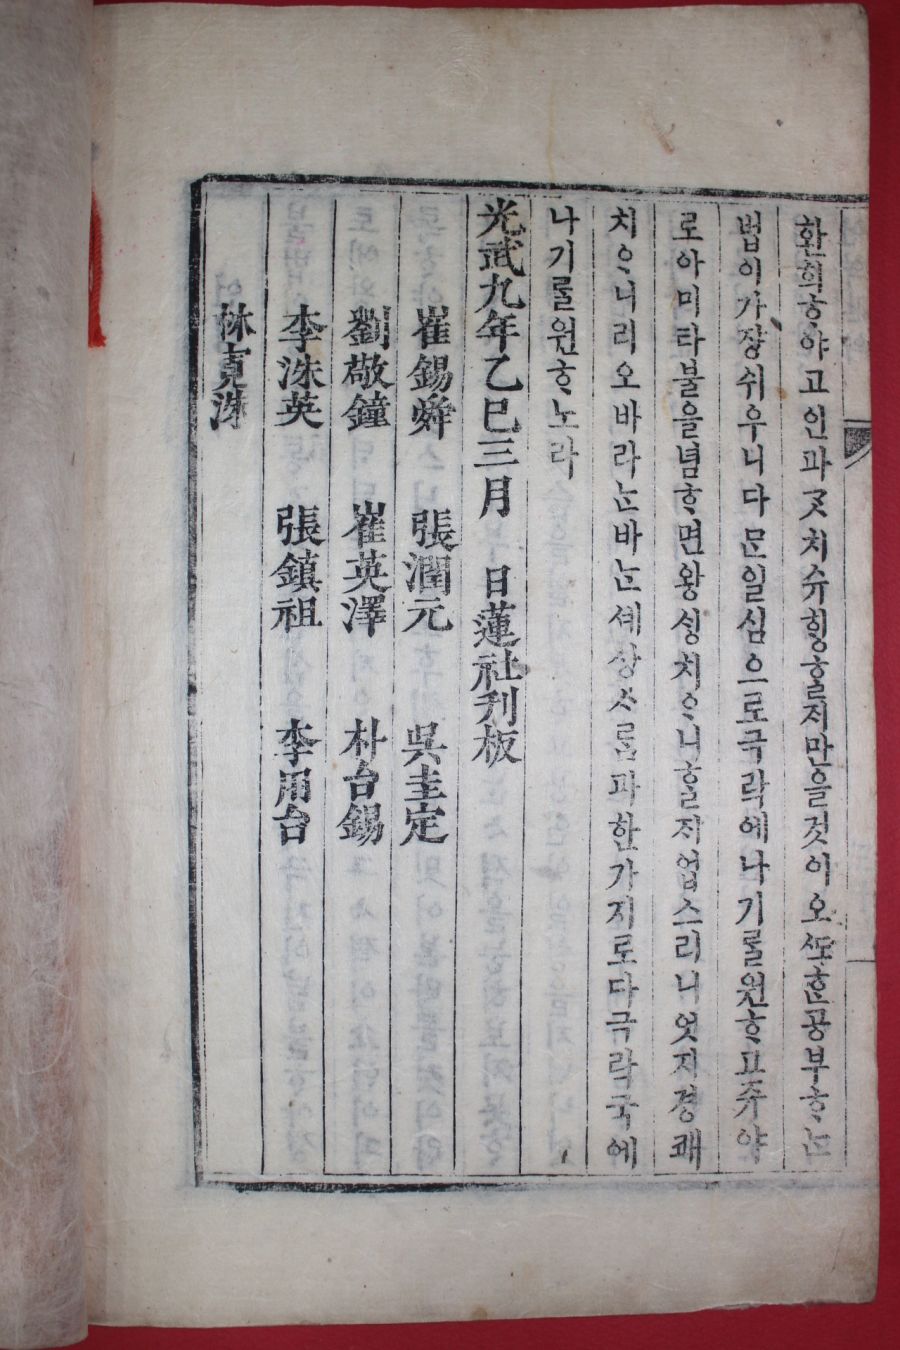 환희ᄒᆞ야고인과ᄀᆞᆺ치슈힝ᄒᆞᆯ지만을것이오ᄯᅩᄒᆞᆫ공부ᄒᆞᄂᆞᆫ
법이가장쉬우니다문일심으로극락에나기를원ᄒᆞ고쥬야
로아미타불을념ᄒᆞ면왕ᄉᆡᆼ치ᄋᆞ니ᄒᆞᆯ지업스리니엇지경쾌
치ᄋᆞ니리오바라ᄂᆞᆫ바ᄂᆞᆫ셰상ᄉᆞᄅᆞᆷ과한가지로다극락국에
나기를원ᄒᆞ노라
光武九年乙巳三月 日蓮社刊板
崔錫舜 張潤元 吳圭定
劉敬鐘 崔英澤 朴台錫
李洙英 張鎮祖 李用台
林寬洙